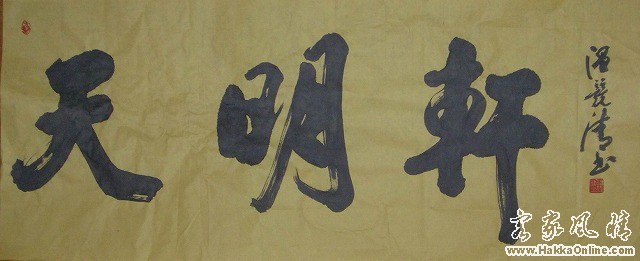 天明軒
温競清书
客家风情
www.HakkaOnline.com